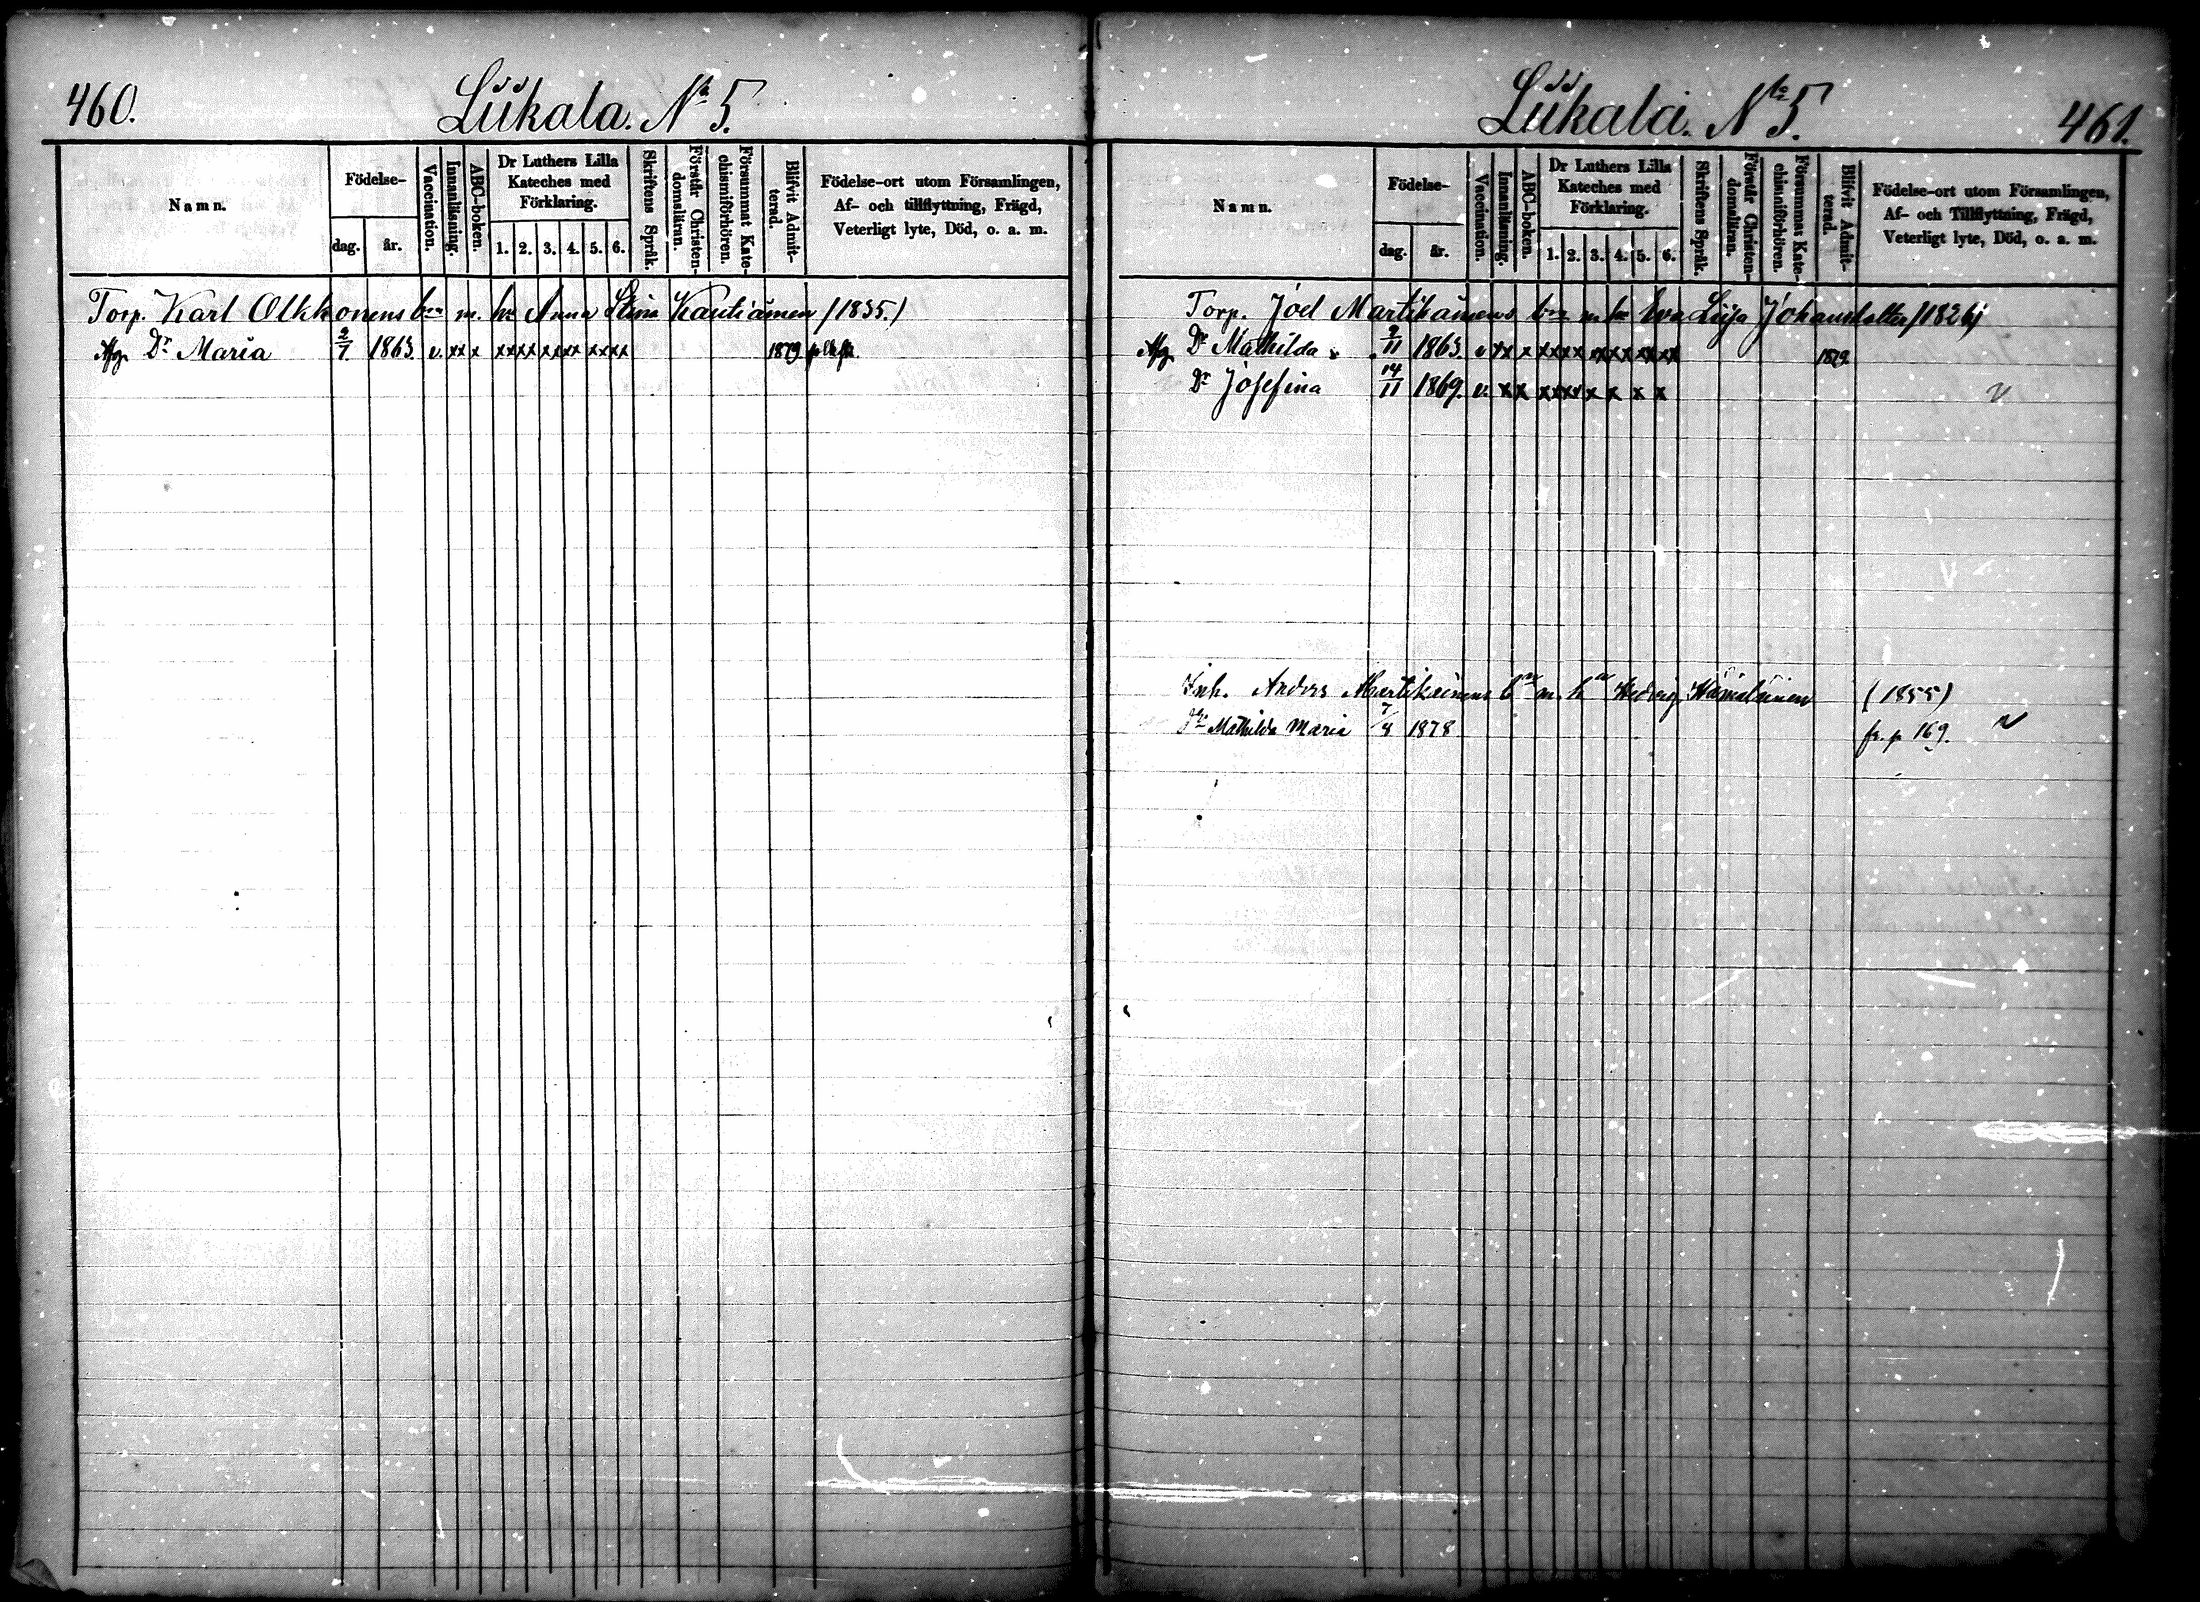 460.
Liikala. No 5.
Namn.
Födelse-
dag.
år.
Vaccination.
Innanläsning.
ABC-boken.
Dr Luthers Lilla
Kateches med
Förklaring.
1. 2. 3. 4. 5. 6.
Skriftens Språk.
Förstår Christen-
domsläran.
Försummat Kate-
chismiförhören.
Blifvit Admit-
terad.
Födelse-ort utom Församlingen,
Af- och tillflyttning, Frägd,
Veterligt lyte, Död, o. a. m.
Torp. Karl Olkkonens brn m. hu Anna Stina Kautiainen (1835.)
Afg. Dr Maria 2/7 1863. v. xx x xxxx xxxx xxxx 1879
Liikala. No 5.
461.
Namn.
Födelse-
dag.
år.
Vaccination.
Innanläsning.
ABC-boken.
Dr Luthers Lilla
Kateches med
Förklaring.
1. 2. 3. 4. 5. 6.
Skriftens Språk.
Förstår Christen-
domsläran.
Försummat Kate-
chismiförhören.
Blifvit Admit-
terad.
Födelse-ort utom Församlingen,
Af- och Tillflyttning, Frägd,
Veterligt lyte, Död, o. a. m.
Torp. Joel Martikainens brn m. hu Eva Lisa Johansdotter (1826)
Afg. Dr Mathilda 2/11 1863. v xx x xxxx xxxxxxx 1879.
Dr Josefina 14/11 1869. v. xx x xxxx x x x x
Inh. Anders Martikainens brn m. hu Hedvig Hämäläinen (1855)
Dr Mathilda Maria 7/8 1878 fr. p 169.